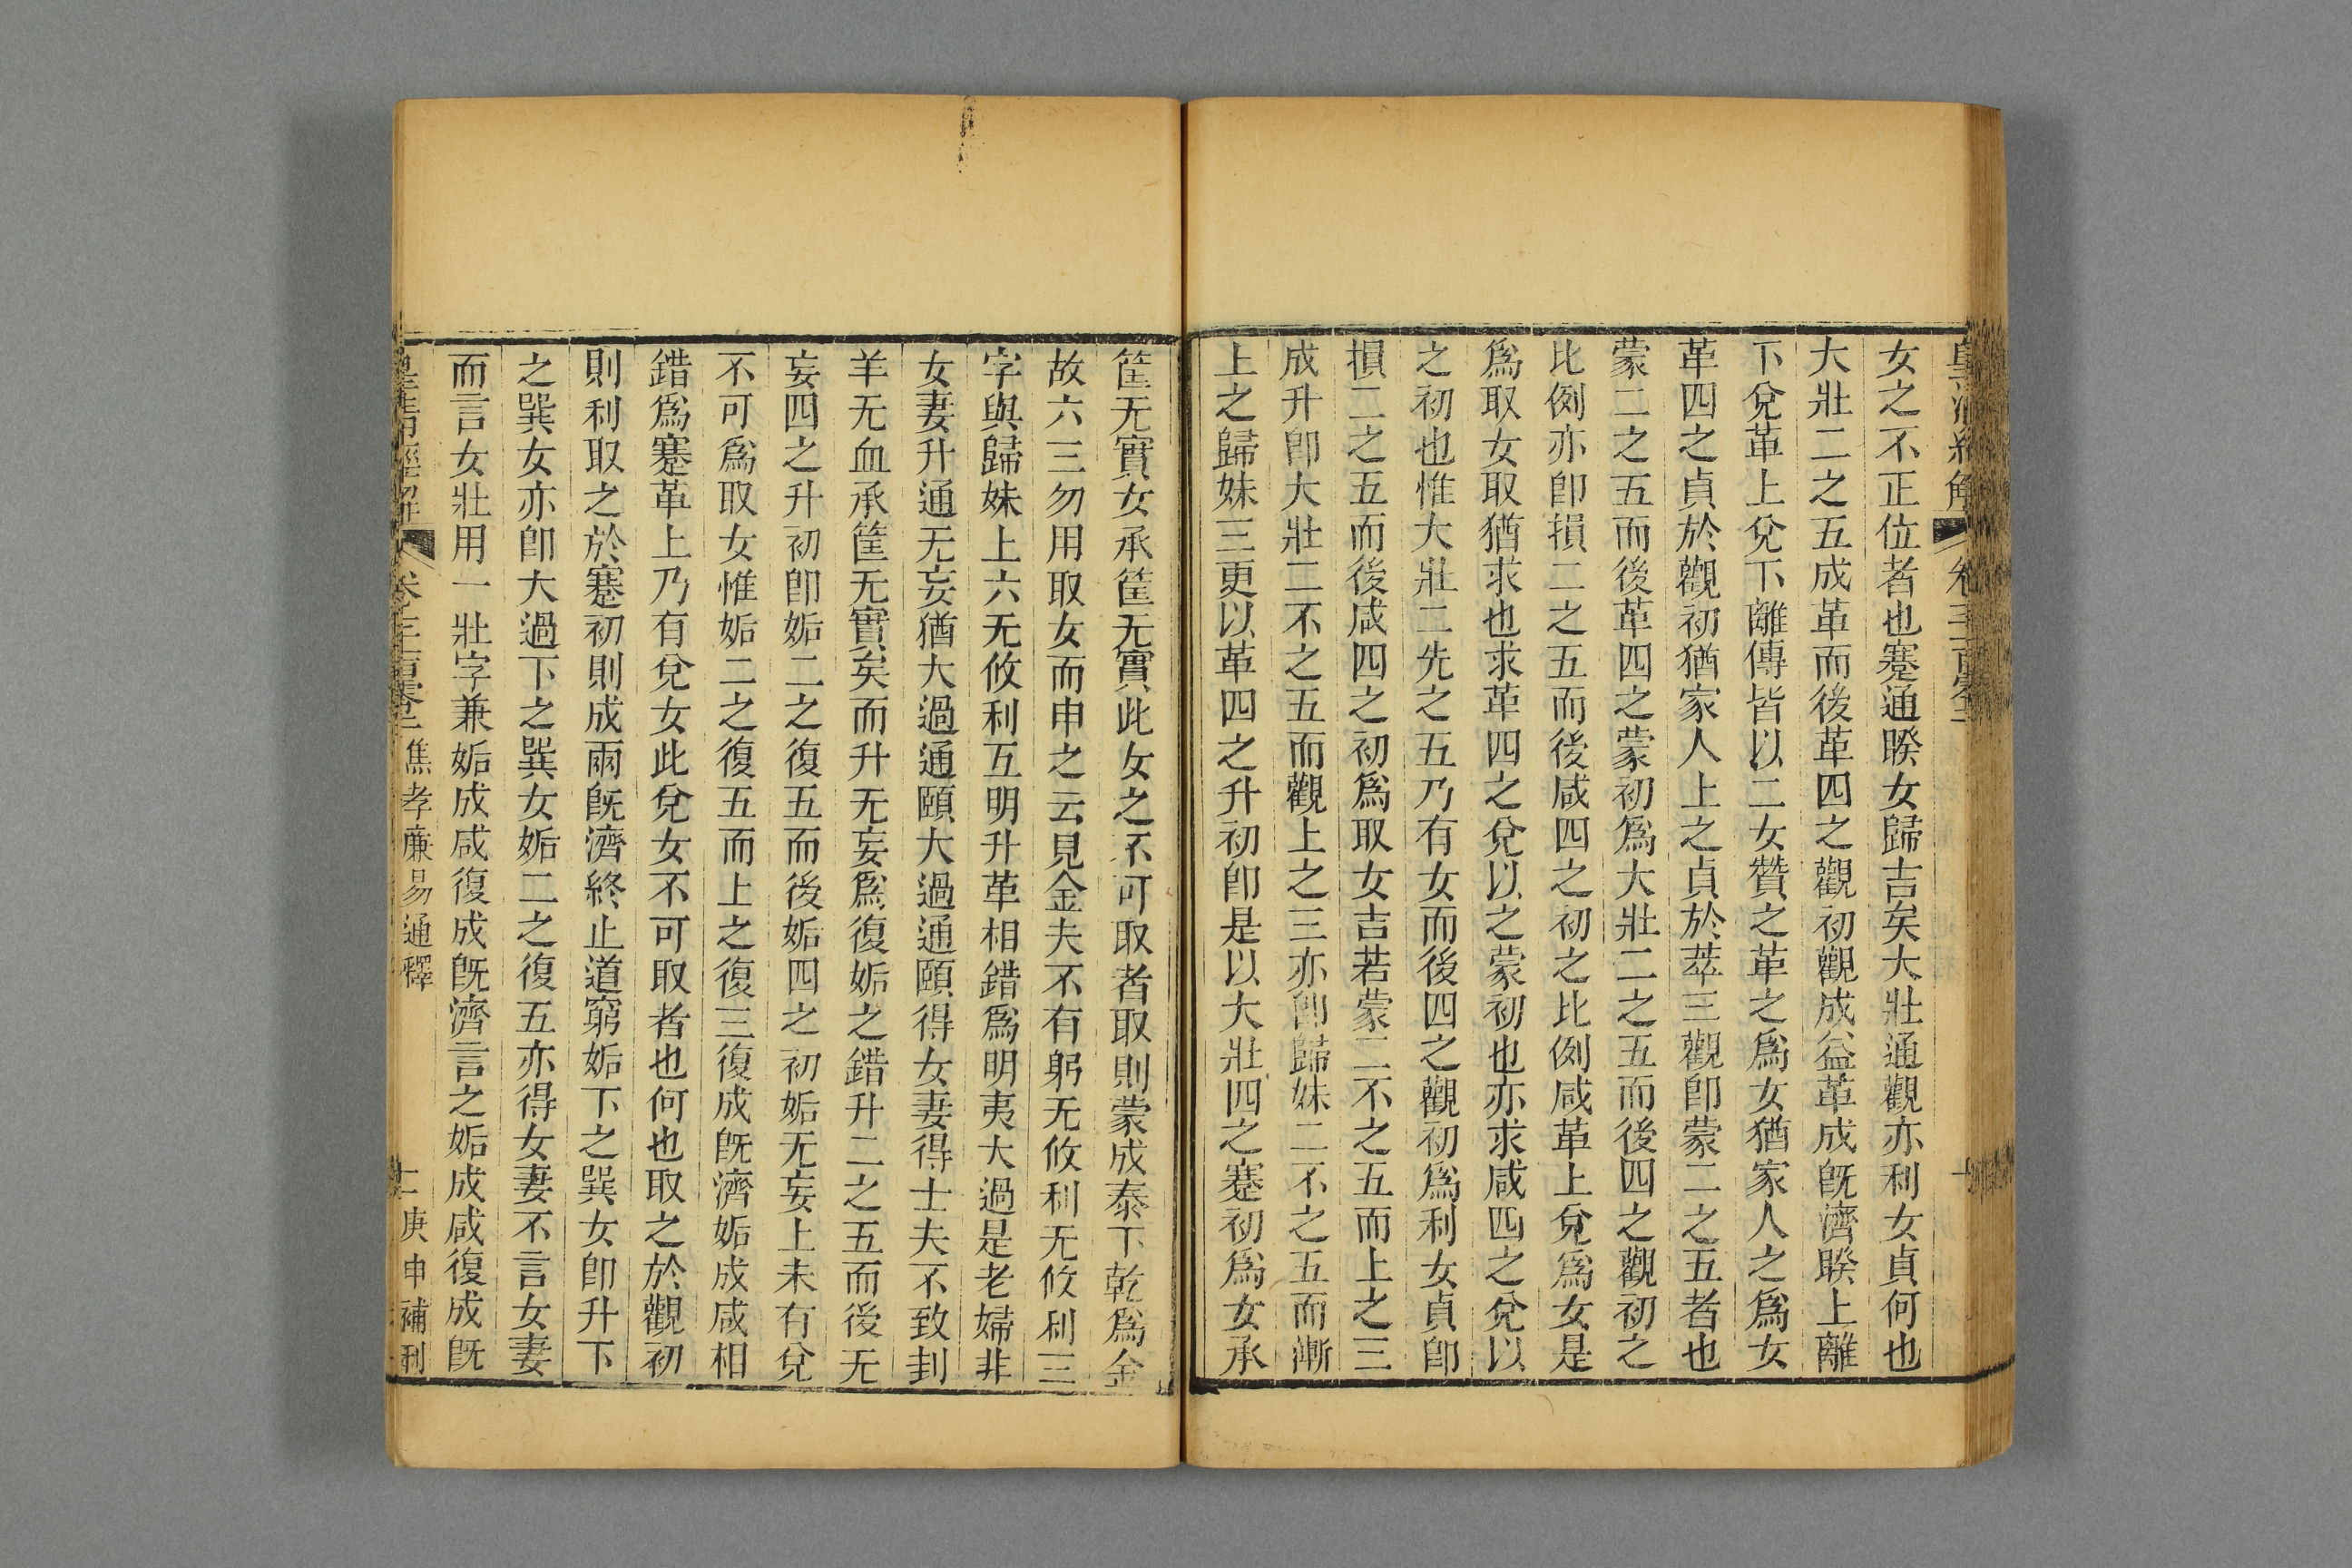 皇清經解 卷一千一百零二 十
女之不正位者也蹇通睽女歸吉矣大壯通觀亦利女貞何也
大壯二之五成革而後革四之觀初觀成益革成旣濟睽上離
下兌革上兌下離傳皆以二女贊之革之爲女猶家人之爲女
革四之貞於觀初猶家人上之貞於萃三觀卽蒙二之五者也
蒙二之五而後革四之蒙初爲大壯二之五而後四之觀初之
比例亦卽損二之五而後咸四之初之比例咸革上兌爲女是
爲取女取猶求也求革四之兌以之蒙初也亦求咸四之兌以
之初也惟大壯二先之五乃有女而後四之觀初爲利女貞卽
損二之五而後咸四之初爲取女吉若蒙二不之五而上之三
成升卽大壯二不之五而觀上之三亦卽歸妹二不之五而漸
上之歸妹三更以革四之升初卽是以大壯四之蹇初爲女承
筐无實女承筐无實此女之不可取者取則蒙成泰下乾爲金
故六三勿用取女而申之云見金夫不有躬无攸利无攸利三
字與歸妹上六无攸利互明升革相錯爲明夷大過是老婦非
女妻升通无妄猶大過通頤大過通頤得女妻得士夫不致刲
羊无血承筐无實矣而升无妄爲復姤之錯升二之五而後无
妄四之升初卽姤二之復五而後姤四之初姤无妄上未有兌
不可爲取女惟姤二之復五而上之復三復成旣濟姤成咸相
錯爲蹇革上乃有兌女此兌女不可取者也何也取之於觀初
則利取之於蹇初則成兩旣濟終止道窮姤下之巽女卽升下
之巽女亦卽大過下之巽女姤二之復五亦得女妻不言女妻
而言女壯用一壯字兼姤成咸復成旣濟言之姤成咸復成旣
皇清經解 焦孝廉易通釋 庚申補刊